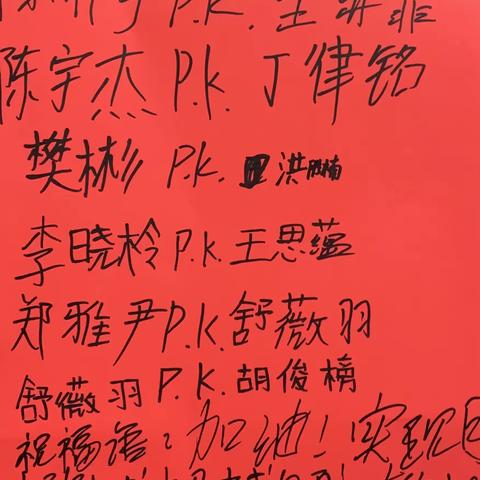 P.K. 王
陈宇杰 P.K. 丁律铭
樊彬 P.K. 洪胜楠
李晓柃 P.K. 王思蕴
郑雅尹 P.K. 舒薇羽
舒薇羽 P.K. 胡俊榜
祝福语：加油！实现